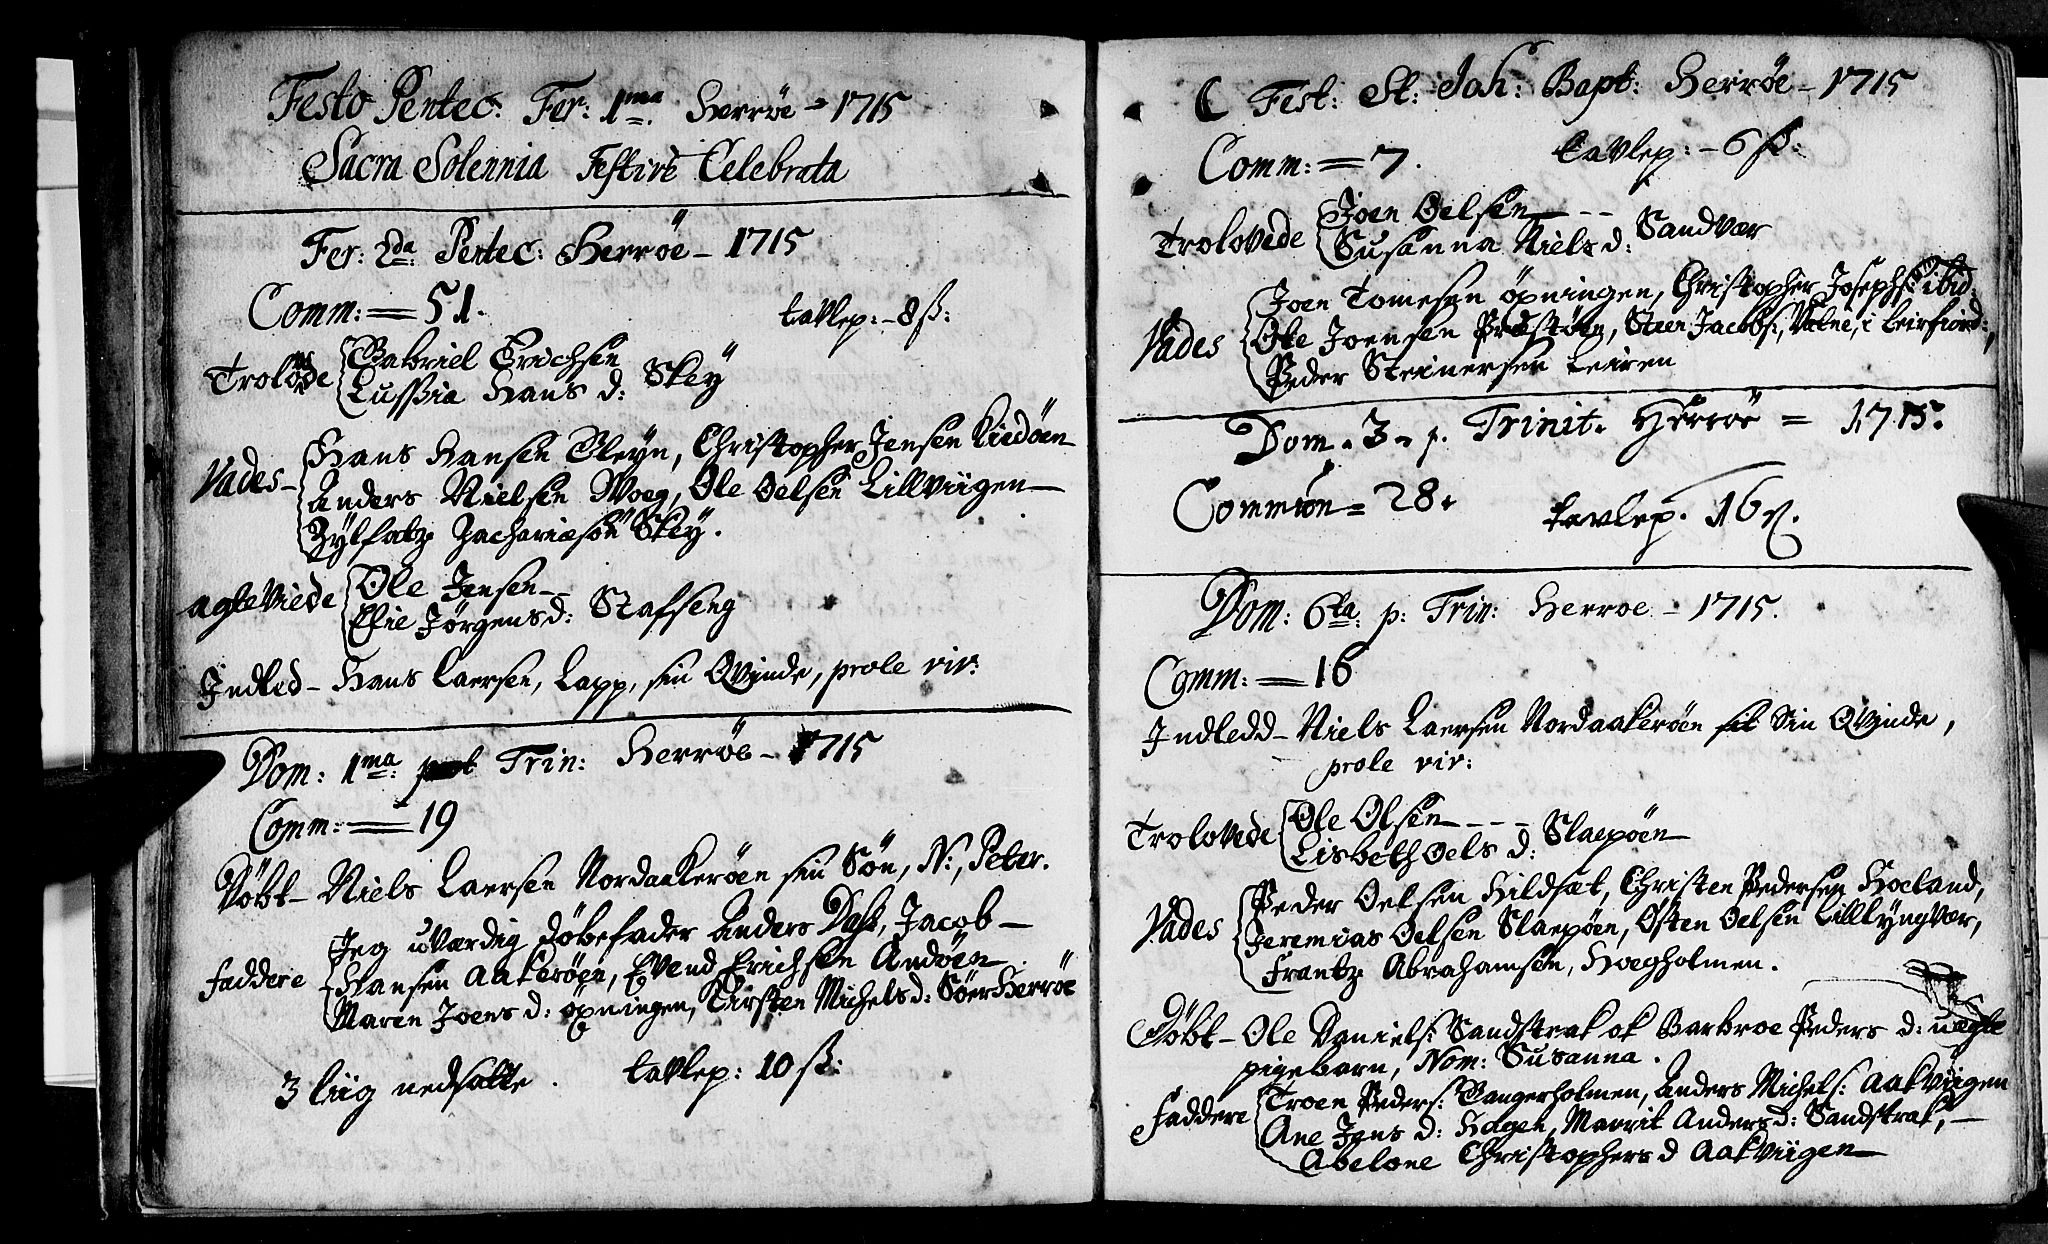 Festo Pentec: Fer: 1ma Herrøe - 1715
Sacra Solennia Festive Celebrata
Fer: 2da: Pentec: Herrøe - 1715
Comm: = 51. tavlep: - 8 ß:
Trolovede Gabriel Erichsen
Lussia Hans d: Skey
Vades - Hans Hansen Tleyn, Christopher Jensen
Anders Nielsen Woeg, Ole Oelsen Lillviigen
Zachariæsøn Skey.
agteviede Ole Jensen
Elie Jørgens d: Stafseng
Indled - Hans Laersen, Lapp, sin Qvinde, prole vir:
Dom: 1ma: post Trin: Herrøe - 1715
Comm: = 19
Døbt - Niels Laersen Nordaakerøen sin Søn, N:, Peter.
Jeg uværdig døbefader Anders Dass, Jacob
faddere Hansen Aakerøen, Evend Erichsen Andøen
Maren Joens d: øpningen, Kirsten Michels d: Søer Herrøe
3 liig nedsatte. tavlep: 10 ß:
Fest: St: Joh: Bapt: Herrøe - 1715
Comm: = 7. tavlep: - 6 ß:
Trolovede Joen Oelsen - -
Susanna Niels d: Sandvær
Joen Tomesen øpningen, Christopher Josephs: ibid:
Vades Ole Joensen Præstøen, Steen Jacobs:, Valne, i Leirfiord:,
Peder Steinersen Leiren
Dom. 3. p. Trinit. Herrøe = 1715.
Common = 28. tavlep. 16 ß.
Dom: 6ta: p: Trin: Herroe - 1715.
Comm: = 16
Indledd - Niels Laersen Nordaakerøen sin Qvinde,
prole vir:
Trolovede Ole Olsen - - -
Lisbeth Oels d: Slaepøen
Peder Oelsen Hildsæt, Christen Pedersen Hoeland,
Vades Jeremias Oelsen Slaepøen, Østen Oelsen Lillyngvær,
Frantz Abrahamsen, Hoegholmen.
Døbt - Ole Daniels: Sandstrak ok Barbroe Peders d: uægte
pigebarn, Nom: Susanna.
Faddere Troen Peders: Gangerholmen, Anders Michels: Aakviigen
Ane Jens d: Hagen, Marrit Anders d: Sandstrak, -
Abelone Christophers d Aakviigen